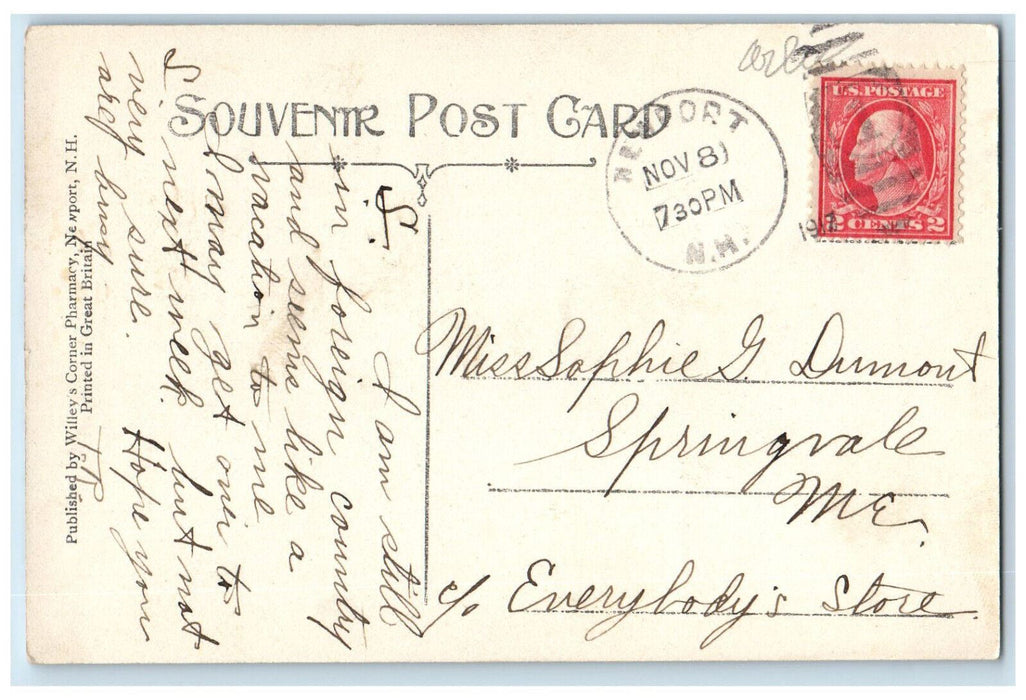 SOUVENIR POST CARD
NEWPORT
NOV 8
7 30 PM
N.H.
1917
U.S. POSTAGE
2 CENTS 2
Miss Sophie G. Dumont
Springvale
Me.
c/o Everybody's Store.
S.
I am still
in foreign country
and seems like a
vacation to me
I may get over to
S next week. but not
very sure. Hope you
are busy
Published by Willey's Corner Pharmacy, Newport, N.H.
Printed in Great Britain